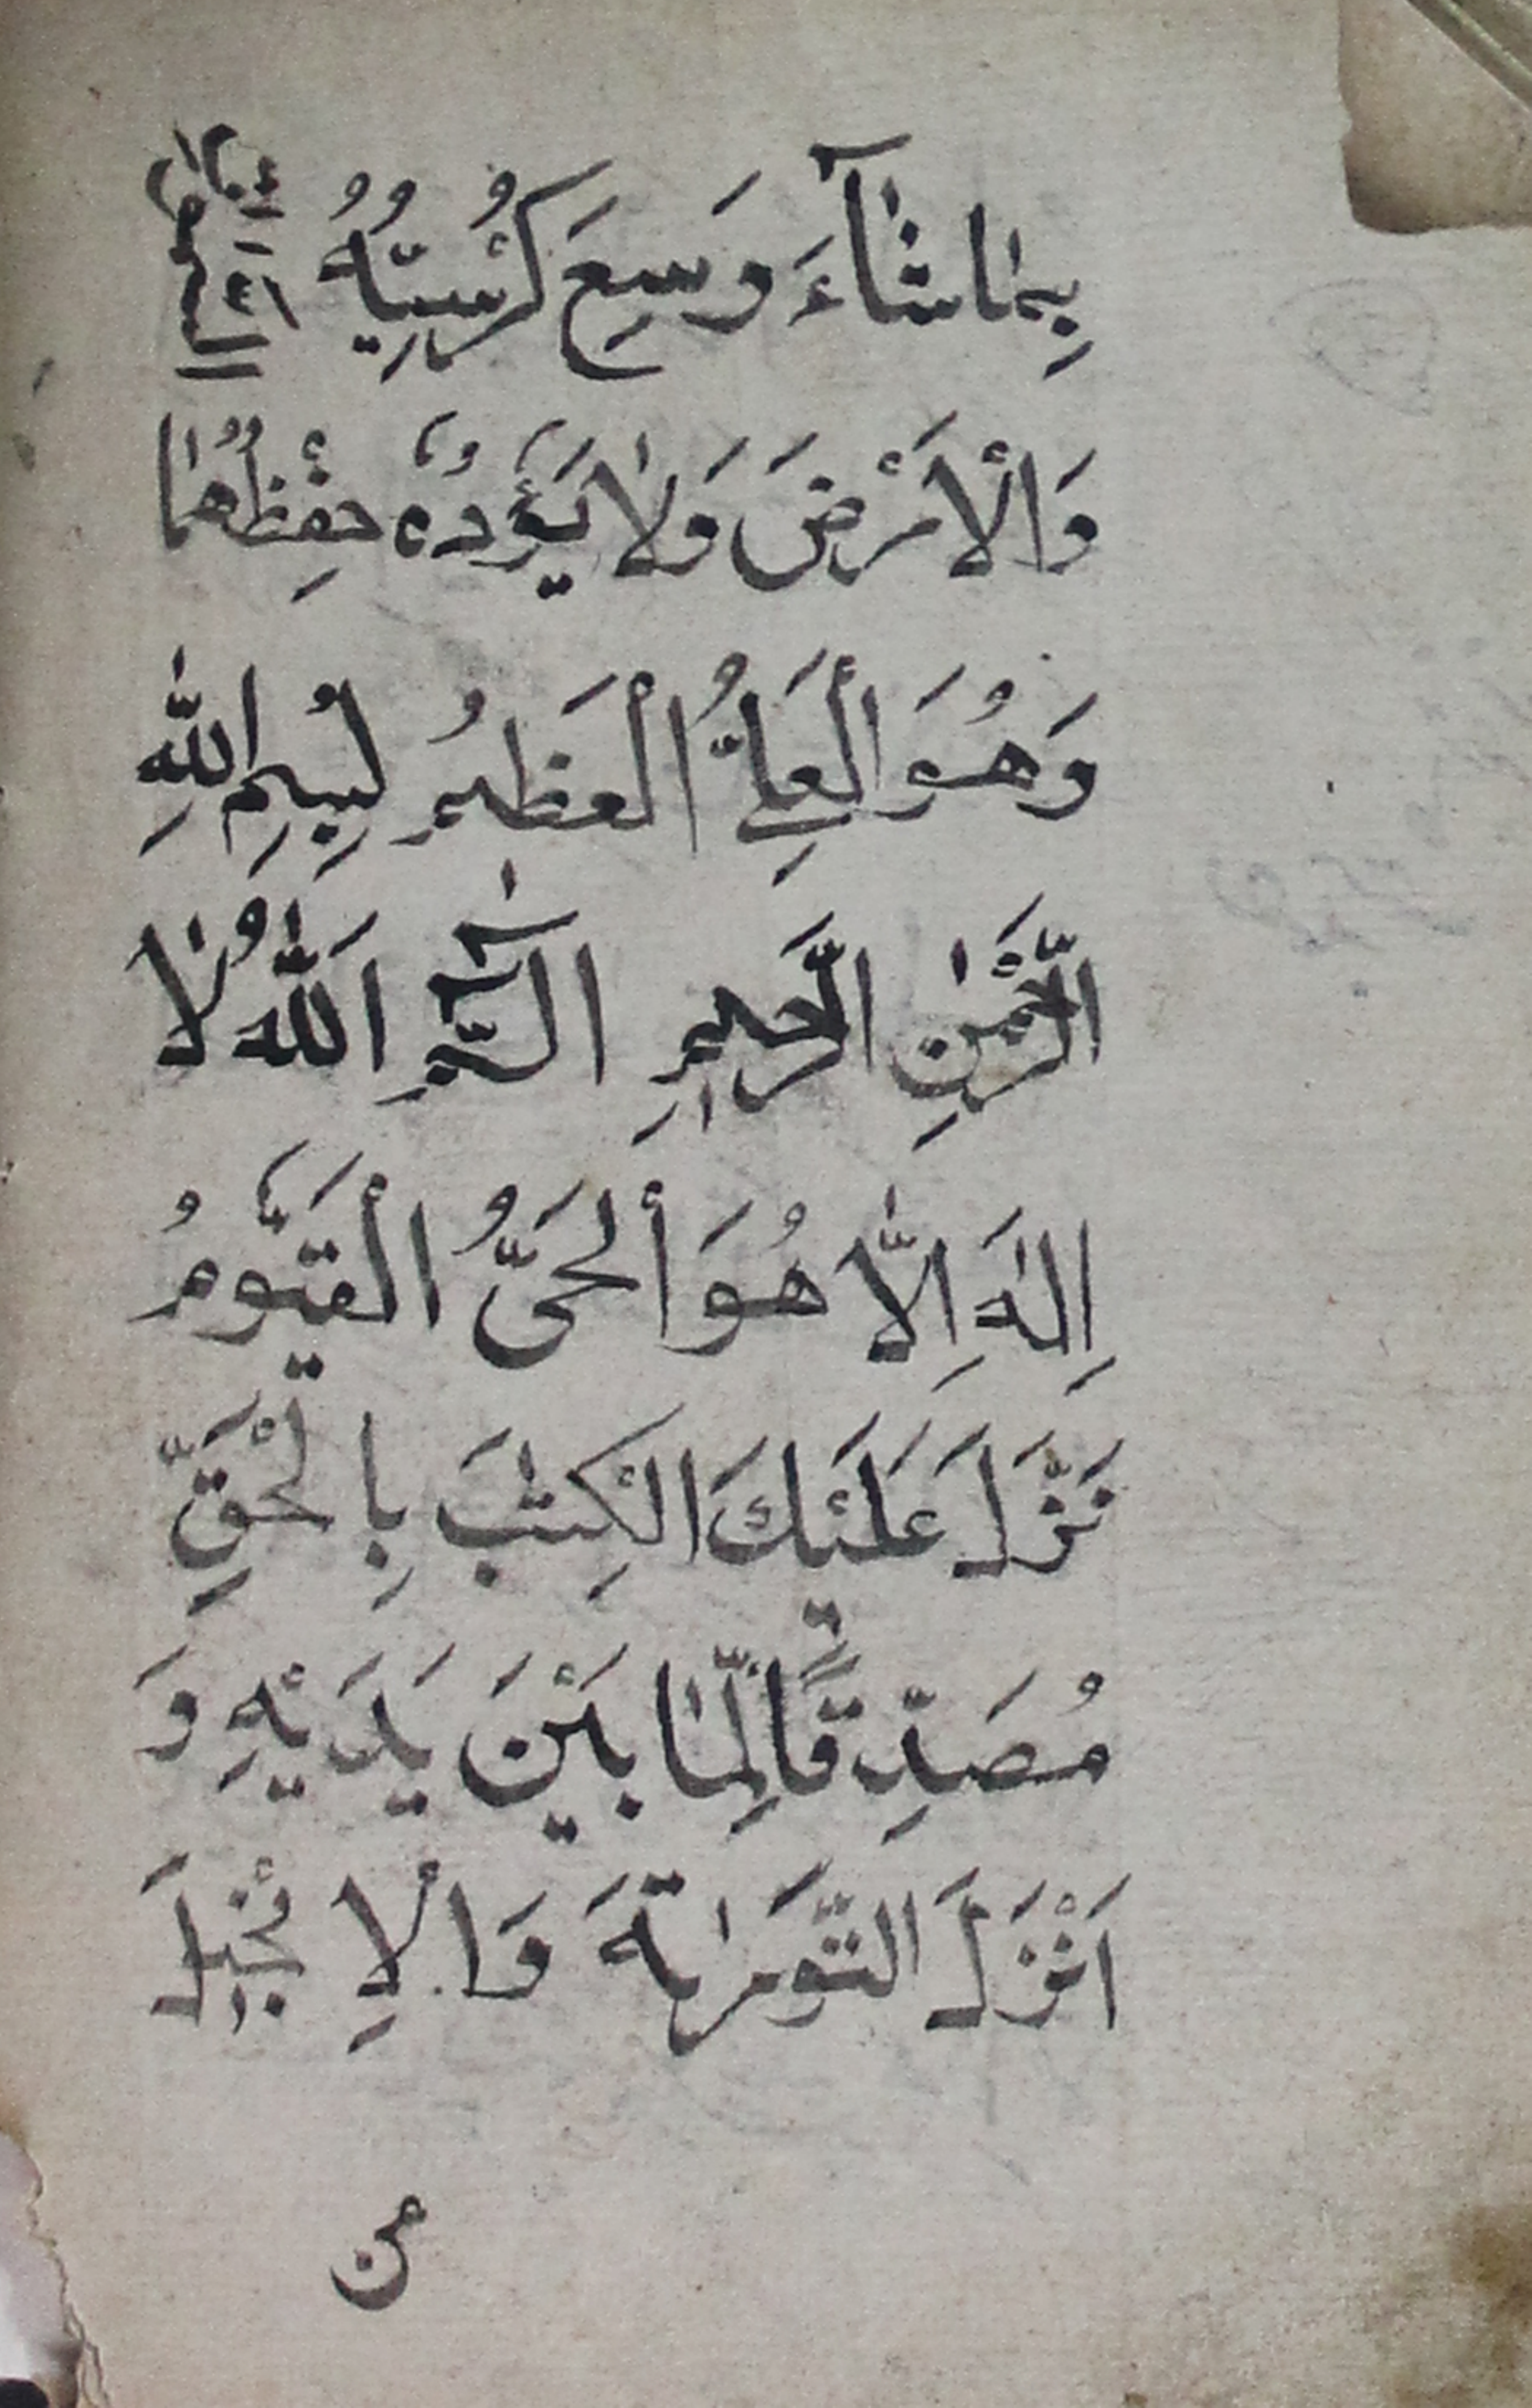 بِمٰا شٰآءَ وَسِعَ كُرْسِيُّهُ السَّمٰوٰاتِ
وَالْاَرْضَ وَلٰا يَؤُدُهُ حِفْظُهُمٰا
وَهُوَ الْعَلِيُّ الْعَظيمُ بِسْمِ اللّٰهِ
الرَّحْمٰنِ الرَّحيمِ الٓمٓ اَللّٰهُ لٰا
اِلٰهَ اِلّٰا هُوَ الْحَىُّ الْقَيُّومُ
نَزَّلَ عَلَيْكَ الْكِتٰبَ بِالْحَقِّ
مُصَدِّقًا لِمٰا بَيْنَ يَدَيْهِ وَ
اَنْزَلَ التَّوْرٰيةَ وَالْاِنْجيلَ
من